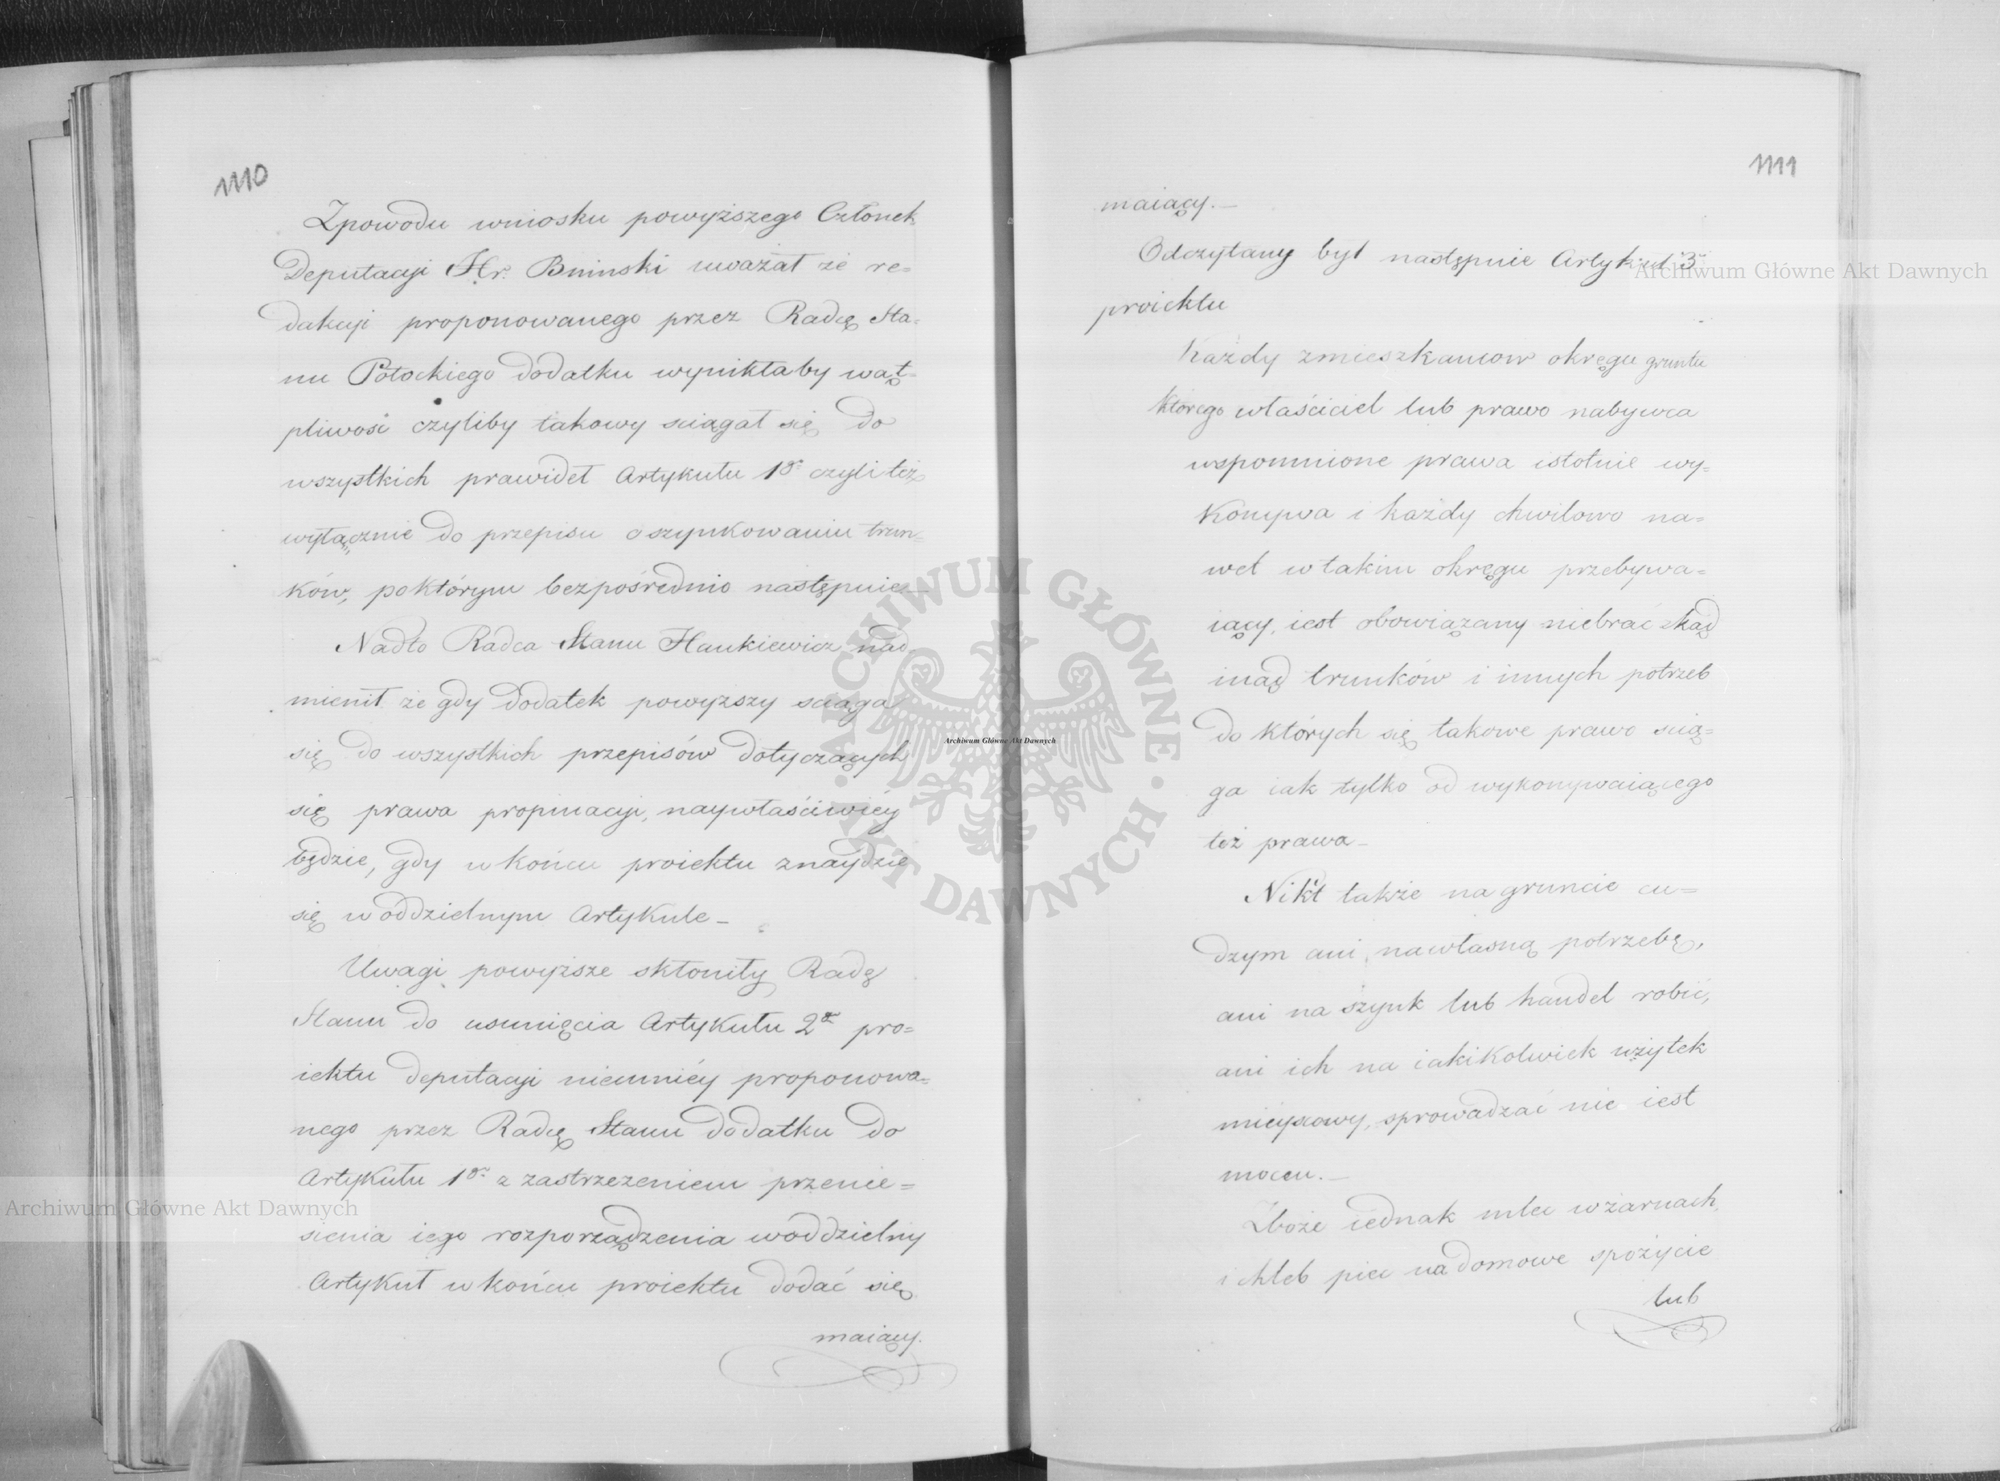 1110
Zpowodu wniosku powyższego Członek
Deputacyi Hr. Bninski uważał że re=
dakcyi proponowanego przez Radcę Sta=
nu Potockiego dodatku wynikłaby wąt=
pliwość czyliby takowy sciągał się do
wszystkich prawideł Artykułu 1º czyli też
wyłącznie do przepisu o szynkowaniu trun=
ków, poktórym bezpośrednio następuie_
Nadto Radca Stanu Hankiewicz nad
mienił że gdy dodatek powyższy sciąga
się do wszystkich przepisów dotyczących
się prawa propinacyi, naywłaściwiéy
będzie, gdy w końcu proiektu znaydzie
się w oddzielnym Artykule_
Uwagi powyższe skłoniły Radę
Stanu do usunięcia Artykułu 2º pro=
iektu deputacyi niemniéy proponowa=
nego przez Radcę Stanu dodatku do
Artykułu 1º z zastrzeżeniem przenie=
sienia iego rozporządzenia woddzielny
Artykuł w końcu proiektu dodać się
maiący.
1111
maiący._
Odczytany był następnie Artykuł 3
proiektu
Każdy zmieszkancow okręgu gruntu
którego właściciel lub prawo nabywca
wspomnione prawa istotnie wy=
konywa i każdy chwilowo na=
wet w takim okręgu przebywa=
iący, iest obowiązany niebrać skąd
inąd trunków i innych potrzeb
do których się takowe prawo scią=
ga iak tylko od wykonywaiącego
też prawa_
Nikt także na gruncie cu=
dzym ani nawłasną potrzebę,
ani na szynk lub handel robić,
ani ich na iakikolwiek użytek
mieyscowy, sprowadzać nie iest
mocen._
Zboże iednak mleć w żarnach,
i chleb piec na domowe spożycie
lub
Archiwum Główne Akt Dawnych
Archiwum Główne Akt Dawnych
Archiwum Główne Akt Dawnych
ARCHIWUM GŁÓWNE · AKT DAWNYCH ·